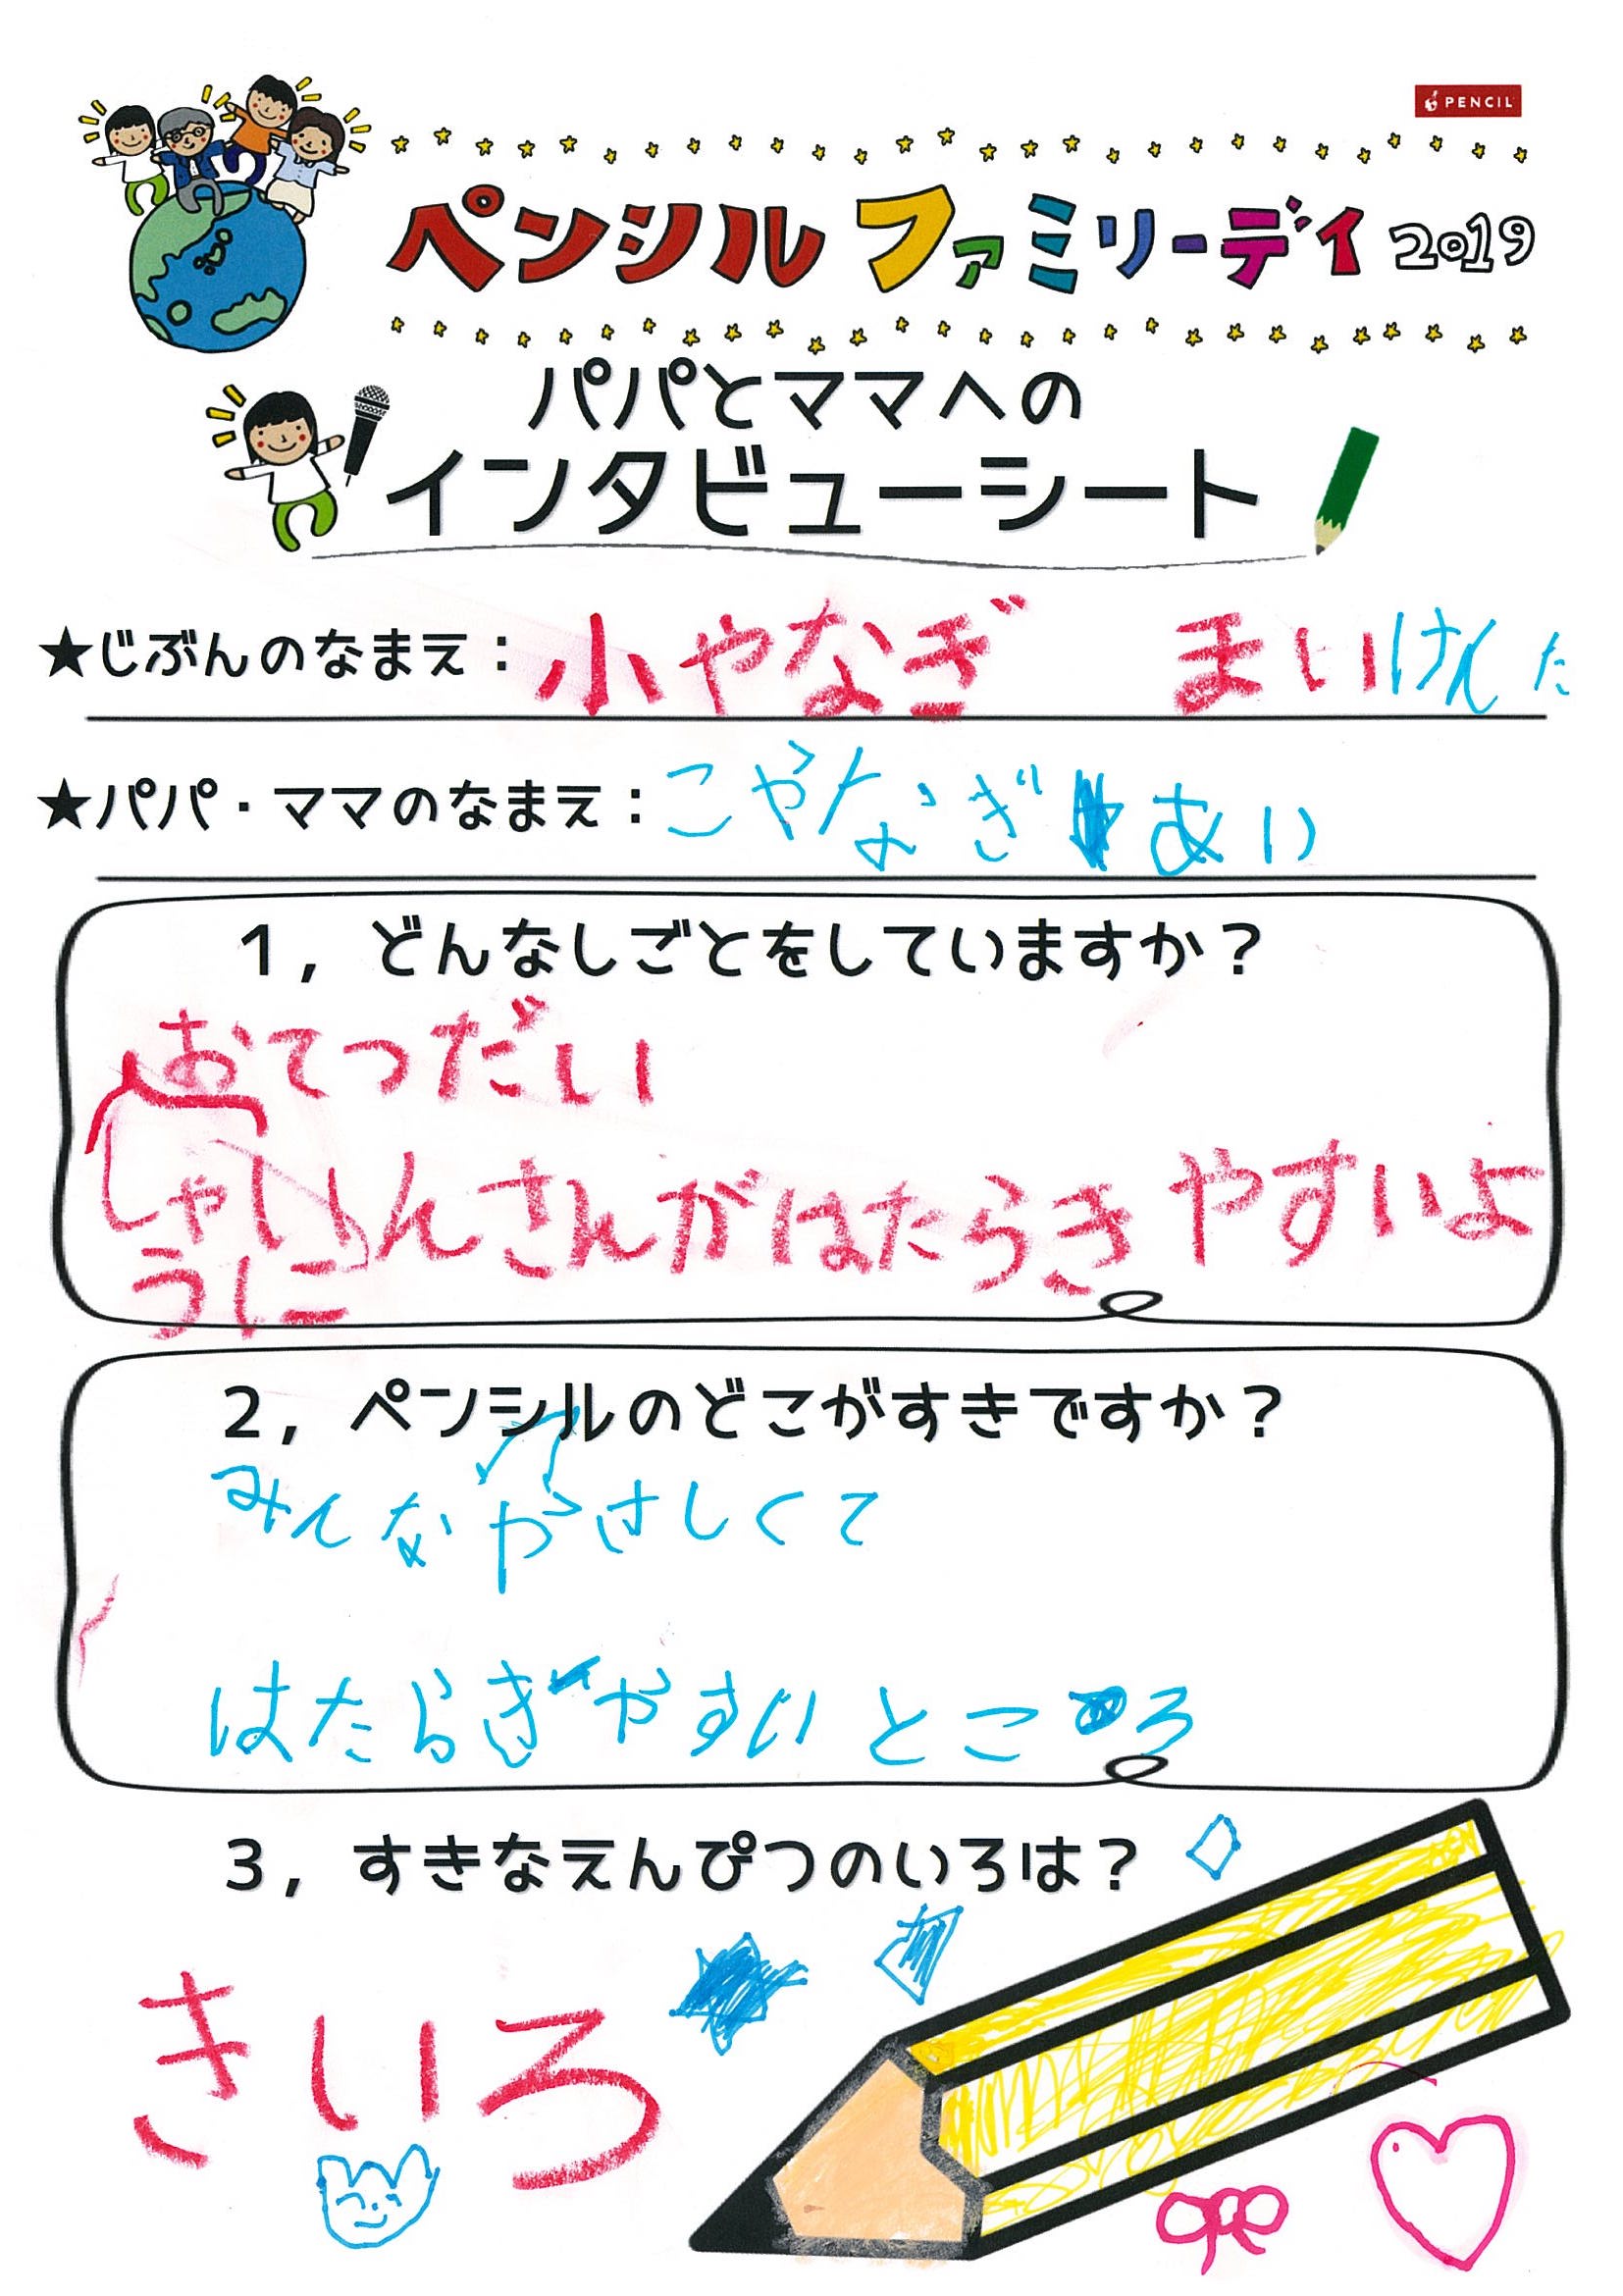 PENCIL
ペンシル ファミリーデイ 2019
パパとママへの
インタビューシート
★じぶんのなまえ： 小やなぎ まい けんた
★パパ・ママのなまえ： こやなぎ あい
1，どんなしごとをしていますか？
おてつだい
しゃいんさんがはたらきやすいよ
うに
2，ペンシルのどこがすきですか？
みんなやさしくて
はたらきやすいところ
3，すきなえんぴつのいろは？
きいろ